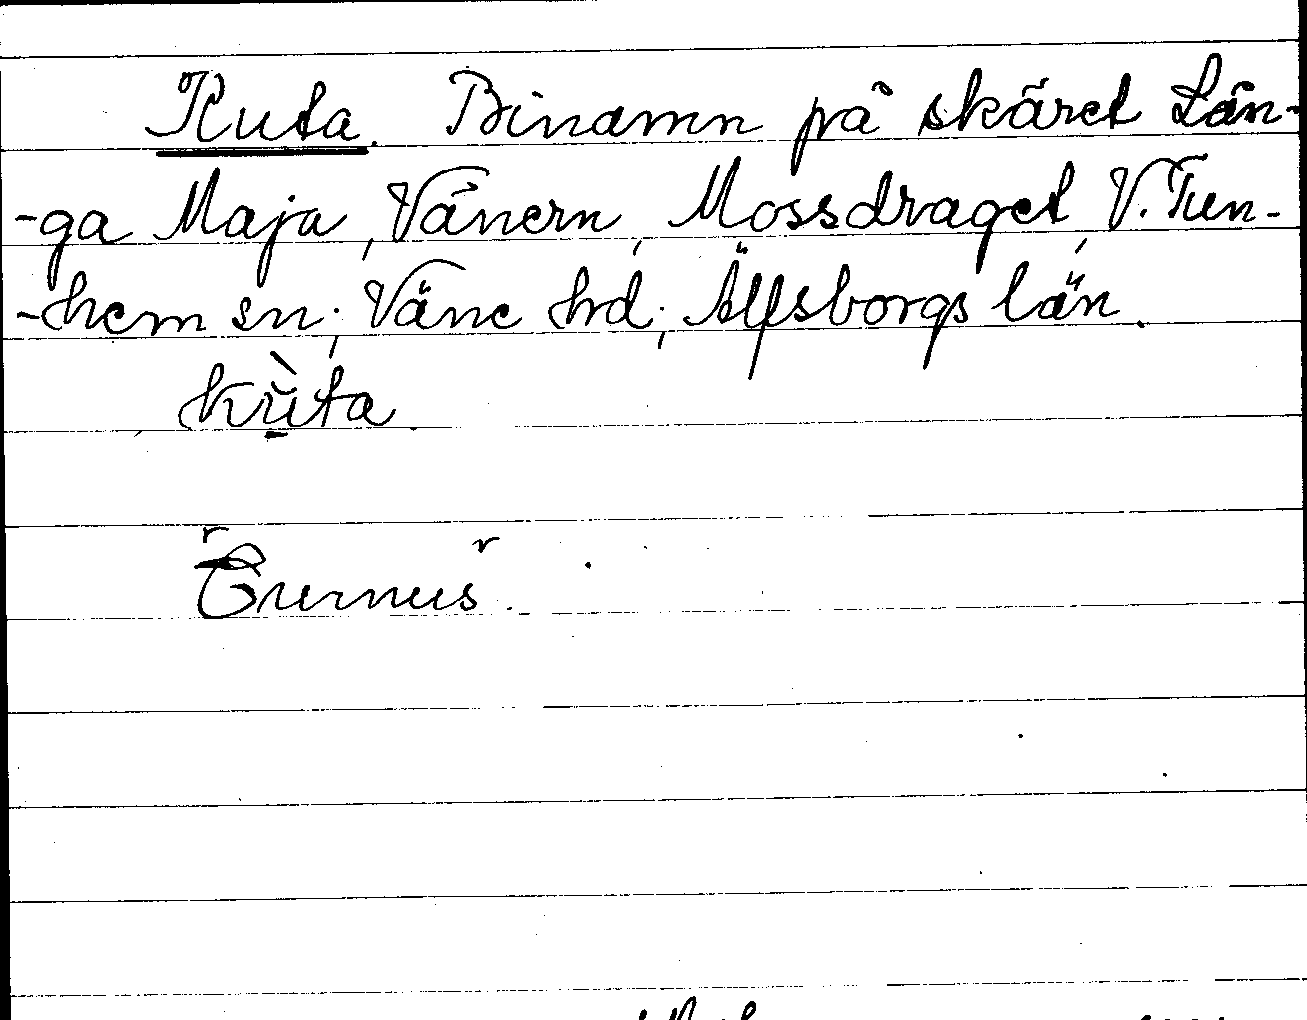 Kuta. Binamn på skäret Lån-
-ga Maja, Vänern, Mossdraget, V. Tun-
-hem sn; Väne hd; Älfsborgs län.
kùta.